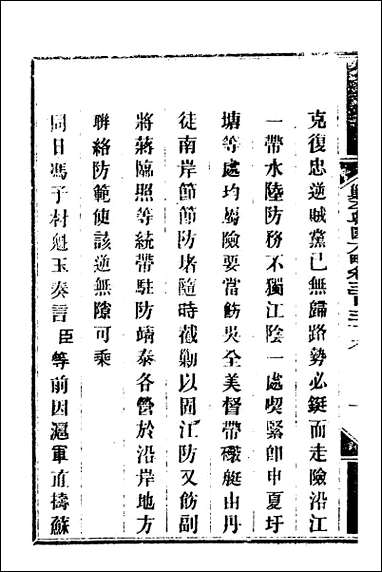 克復忠逆賊黨已無歸路勢必鋌而走險沿江
一帶水陸防務不獨江陰一處喫緊卽申夏圩
塘等處均屬險要當飭吳全美督帶礮艇由丹
徒南岸節節防堵隨時截勦以固江防又飭副
將蔣臨照等統帶駐防靖泰各營於沿岸地方
聯絡防範使該逆無隙可乘
同日馮子材魁玉奏言臣等前因滬軍直擣蘇